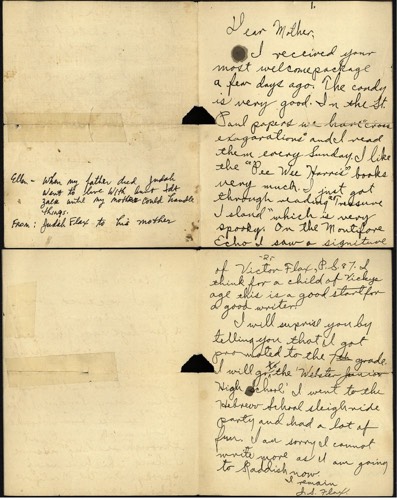 1.
Dear Mother,
I received your
most welcome package
a few days ago. The candy
is very good. In the St.
Paul papers we have "cross
exagarations" and I read
them every Sunday. I like
the "Pee Wee Harris" books
very much. I just got
through reading "Treasure
Island" which is very
spooky. On the Montifore
Echo I saw a signiture
Ellen - When my father died Judah
went to live with
until my mother could handle
things.
From: Judah Flax to his mother
-2-
of Victor Flax, P.S. 87. I
think for a child of Vickys
age this is a good start for
a good writer.
I will suprise you by
telling you that I got
promoted to the 7th grade.
I will go to the Webster Junior
High School. I went to the
Hebrew School sleighride
party and had a lot of
fun. I am sorry I cannot
write more as I am going
to Kaddish now.
I remain
J.S. Flax